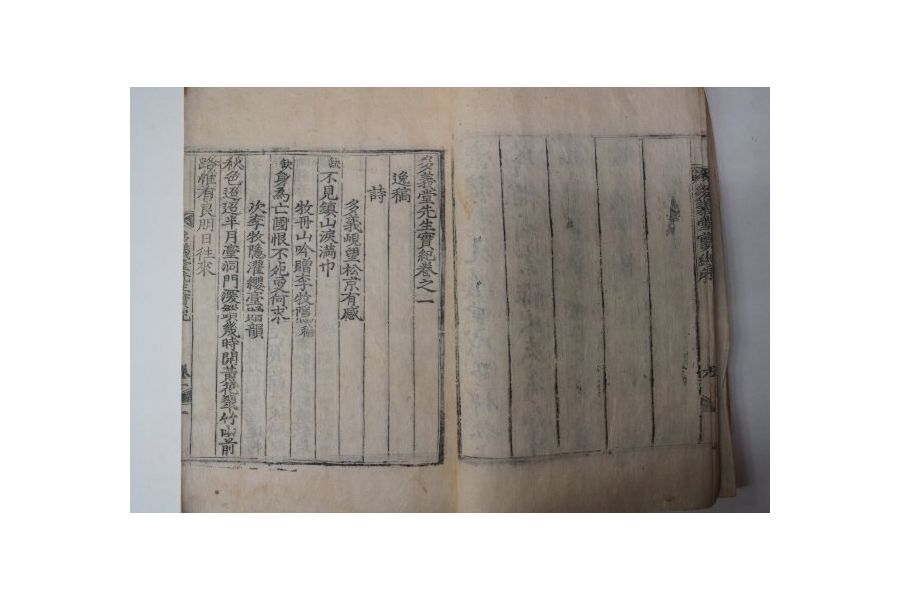 多義堂先生實紀卷之一
逸稿
詩
多義峴望松京有感
缺不見鎮山淚滿巾
牧丹山吟贈李牧隱穡
缺身爲亡國恨不死更何求
次李牧隱濯纓臺韻
秋色迢迢半月臺洞門深鎖幾時開黃花翠竹山前
路惟有良朋日往來
多義堂先生實紀 卷一